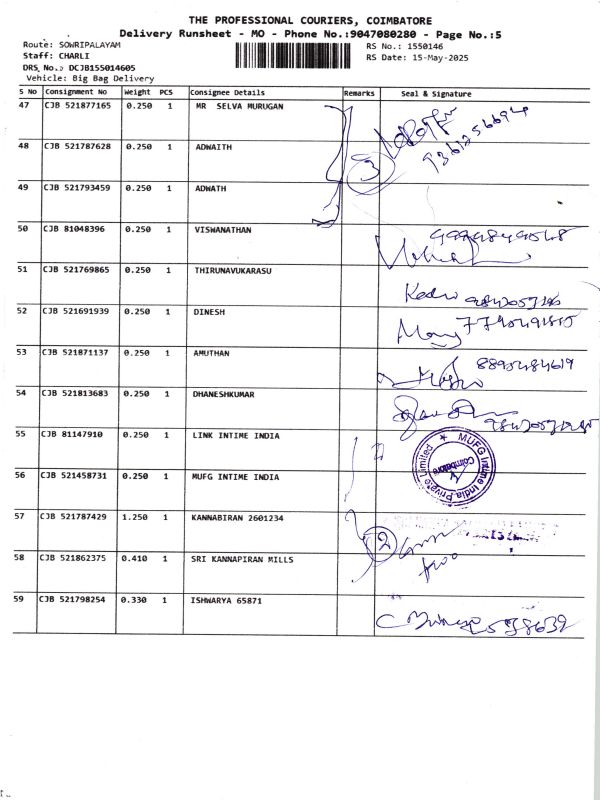 THE PROFESSIONAL COURIERS, COIMBATORE
Delivery Runsheet - MO - Phone No.:9047080280 - Page No.:5
Route: SOWRIPALAYAM RS No.: 1550146
Staff: CHARLI RS Date: 15-May-2025
DRS No.: DCJB155014605
Vehicle: Big Bag Delivery
S No Consignment No Weight PCS Consignee Details Remarks Seal & Signature
47 CJB 521877165 0.250 1 MR SELVA MURUGAN
48 CJB 521787628 0.250 1 ADWAITH
3
49 CJB 521793459 0.250 1 ADWATH
50 CJB 81048396 0.250 1 VISWANATHAN
51 CJB 521769865 0.250 1 THIRUNAVUKARASU
52 CJB 521691939 0.250 1 DINESH
53 CJB 521871137 0.250 1 AMUTHAN
54 CJB 521813683 0.250 1 DHANESHKUMAR
55 CJB 81147910 0.250 1 LINK INTIME INDIA
MUFG Intime India Private Limited
Coimbatore
56 CJB 521458731 0.250 1 MUFG INTIME INDIA
57 CJB 521787429 1.250 1 KANNABIRAN 2601234
2
58 CJB 521862375 0.410 1 SRI KANNAPIRAN MILLS
59 CJB 521798254 0.330 1 ISHWARYA 65871